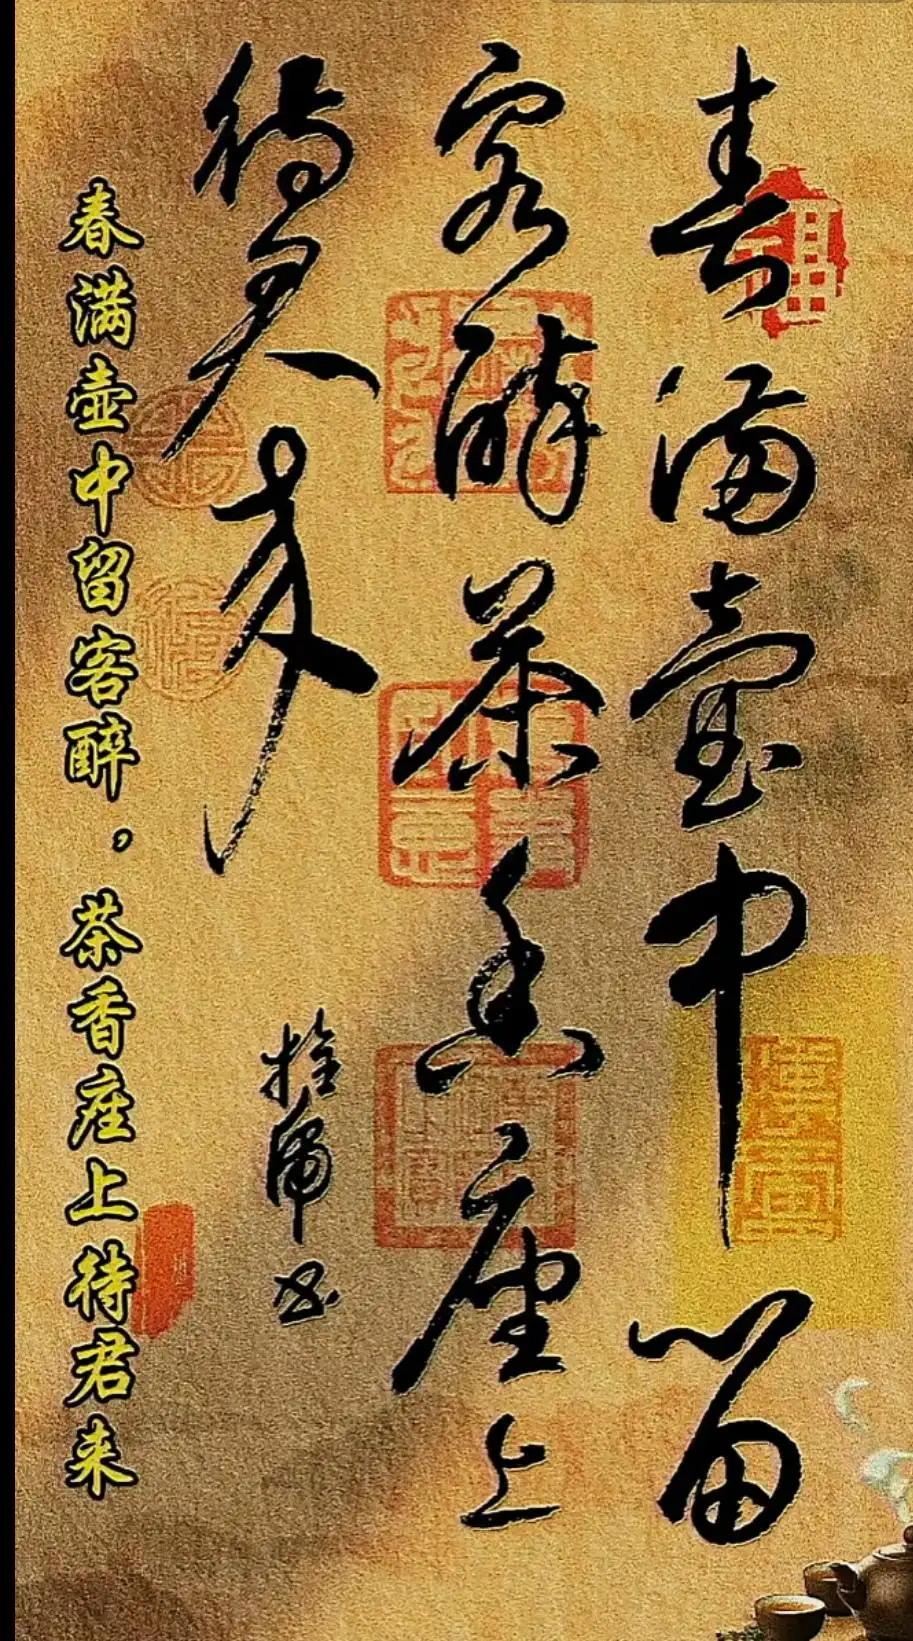 春满壶中留
客醉茶香座上
待君来
书
春满壶中留客醉，茶香座上待君来